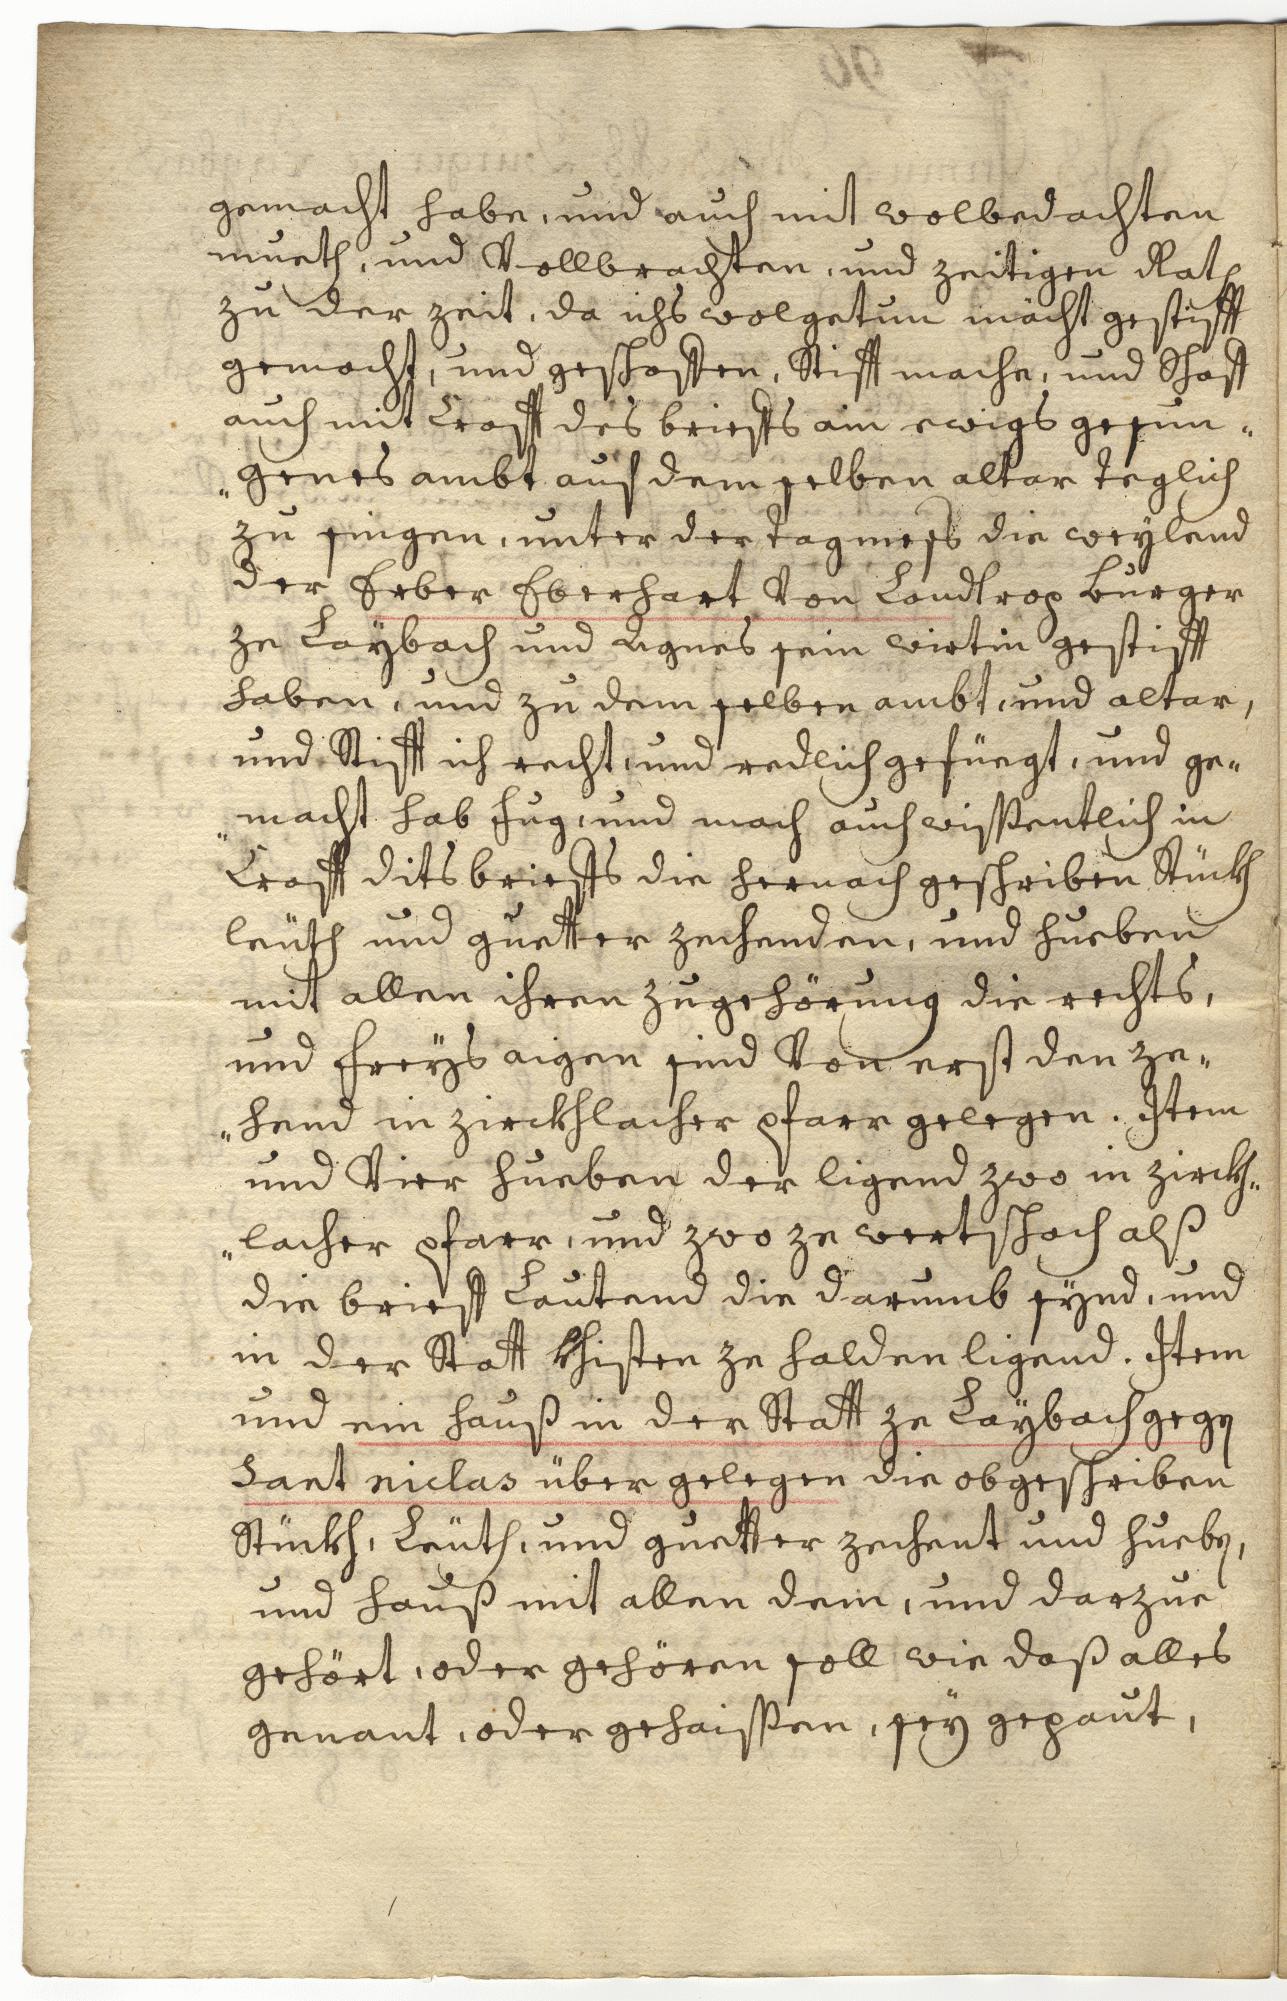 gemacht habe, und auch mit wolbedachten
mueth, und Vollbrachten, und zeitigen Rath
zu der zeit, da ichs wolgetun mächt gestifft
gemacht, und geschaffen, Stifft mache, und Schaff
auch mit Crafft des brieffs ain ewigs gesun„
„genes ambt auf dem selben altar teglich
zu singen, unter der tagmess die weylend
der Erber Eberhart Von Landtrop Burger
ze Laybach und Agnes sein wirtin gestifft
haben, und zu dem selben ambt, und altar,
und Stifft ich recht, und redlich gefüegt, und ge„
„macht hab fug, und mach auch wissentlich in
Crafft dits brieffs die hernach geschriben Stückh
leüth und guetter zehenden, und hueben
mit allen ihren zugehörung die rechts,
und freÿs aigen sind Von erst den ze„
„hend in zirckhlacher pfarr gelegen. Item
und Vier hueben der ligend zwo in zirckh„
„lacher pfarr, und zwo ze wertschach alß
die brieff Lautend die darumb sÿnd, und
in der Statt khisten ze halden ligend. Item
und ein hauß in der Statt ze Laybach gegen
Sant niclas über gelegen die obgeschriben
Stückh, Leüth, und guetter zehent und hueben,
und hauß mit allen dem, und darzue
gehört, oder gehören soll wie daß alles
genant, oder gehaissen, seÿ gepaut,